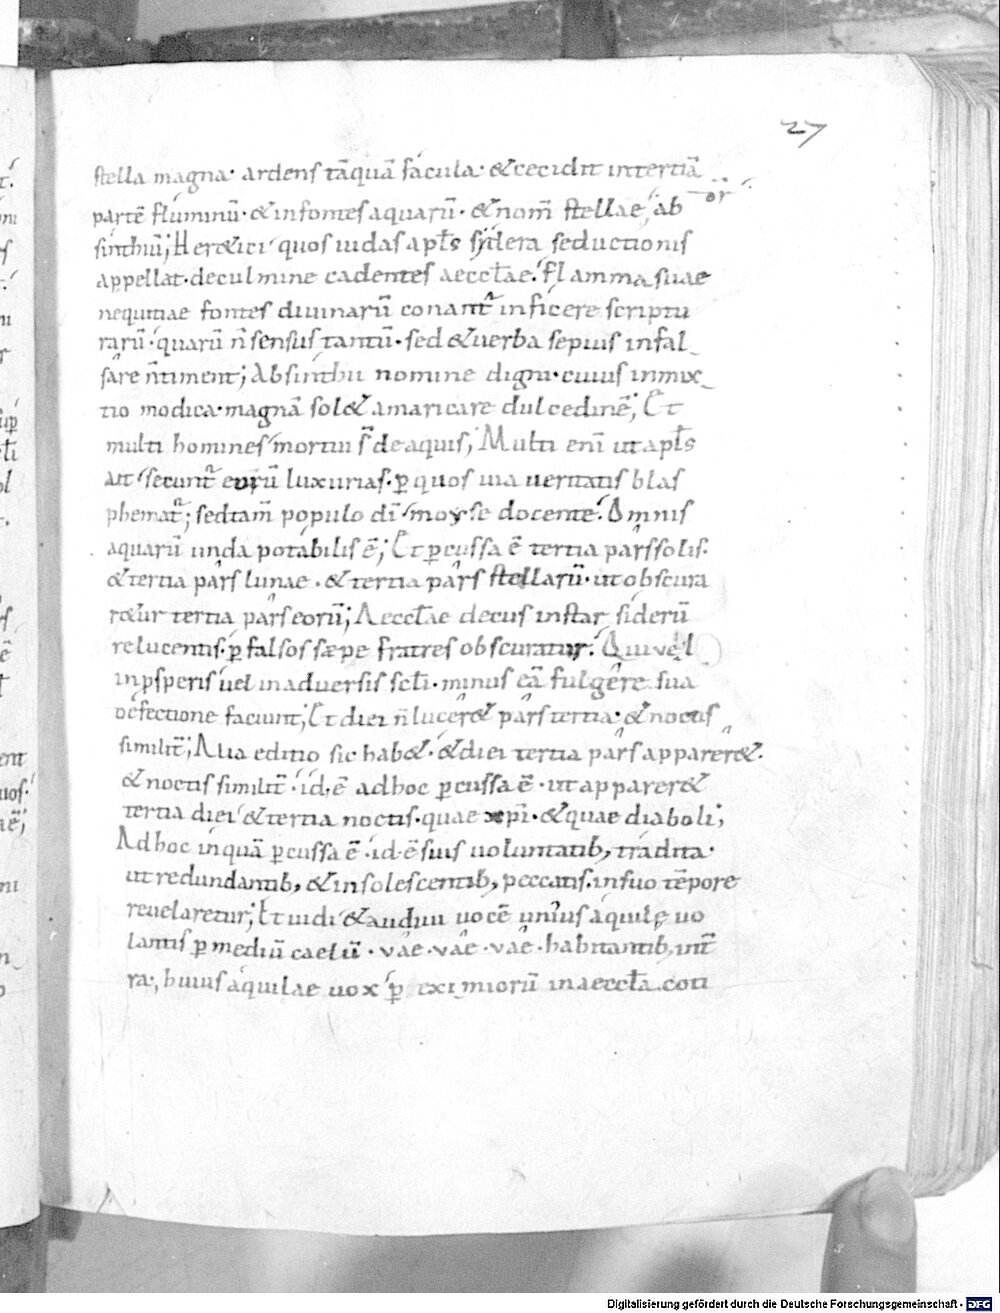 27
stella magna· ardens tāquā facula· &cecidit intertiā
partē fluminū· &infontes aquarū· &nom̄ stellae ab
or
sinthiū; Her&ici quos iudas apl̄s sydera seductionis
appellat· deculmine cadentes aeccl̄ae. Flamma suae
nequitiae fontes diuinarū conant̄ inficere scriptu
rarū· quarū n̄ sensus tantū· sed &uerba sepius infal
sare n̄timent; Absinthii nomine digni· cuius inmix
tio modica· magnā sol& amaricare dulcedinē; Et
multi homines mortui s̄ deaquis; Multi eni ut apl̄s
ait secunt̄ eorū luxurias· ꝑ quos uia ueritatis blas
phemat̄; sedtam̄ populo dī moyse docente. Omnis
aquarū unda potabilis ē; Et ꝑcussa ē tertia pars solis·
&tertia pars lunae· &tertia pars stellarū· ut obscura
r&ur tertia pars eorū; Aeccl̄ae decus instar siderū
relucentis· ꝑ falsos sæpe fratres obscuratur. Qui vel
inꝓsperis uel inaduersis scl̄i· minus eā fulgere sua
defectione faciunt; Et diei n̄ lucer& pars tertia· &noctis
similit̄; Alia editio sic hab&· &diei tertia pars apparer&·
&noctis similit̄· id· ē adhoc ꝑcussa ē· ut apparer&
tertia diei &tertia noctis· quae xp̄i· &quae diaboli;
Adhoc inquā ꝑcussa ē· id· ē suis uoluntatib; tradita·
ut redundantib; &insolescentib; peccatis· insuo tēpore
reuelaretur; Et uidi &audiui uocē unius aquilę uo
lantis ꝑ mediū caelū· vae· vae· vae· habitantib; int̄
ra; huius aquilae uox ꝑ eximiorū inaeccl̄a coti
Digitalisierung gefördert durch die Deutsche Forschungsgemeinschaft - DFG